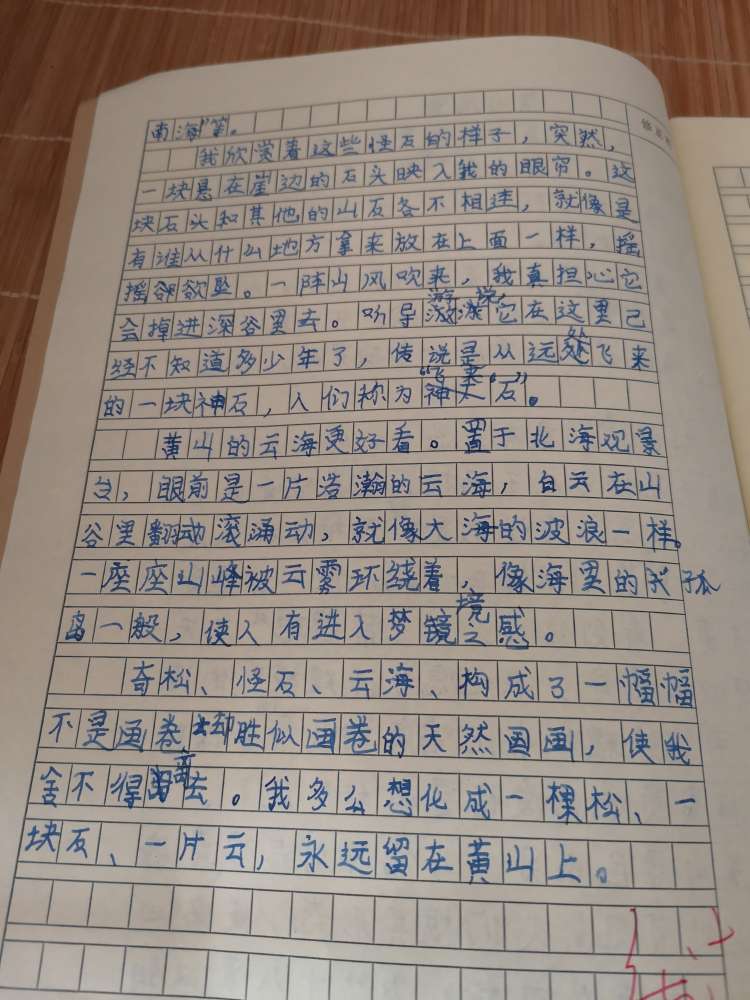 南海"等。
我欣赏着这些怪石的样子，突然，
一块悬在崖边的石头映入我的眼帘。这
块石头和其他的山石各不相连，就像是
有谁从什么地方拿来放在上面一样，摇
摇欲坠。一阵山风吹来，我真担心它
会掉进深谷里去。听导游说，它在这里已
经不知道多少年了，传说是从远处飞来
的一块神石，人们称为"飞来石"。
黄山的云海更好看。置于北海观景
台，眼前是一片浩瀚的云海，白云在山
谷里翻动滚涌动，就像大海的波浪一样。
一座座山峰被云雾环绕着，像海里的孤
岛一般，使人有进入梦境之感。
奇松、怪石、云海、构成了一幅幅
不是画卷却胜似画卷的天然图画，使我
舍不得离去。我多么想化成一棵松、一
块石、一片云，永远留在黄山上。